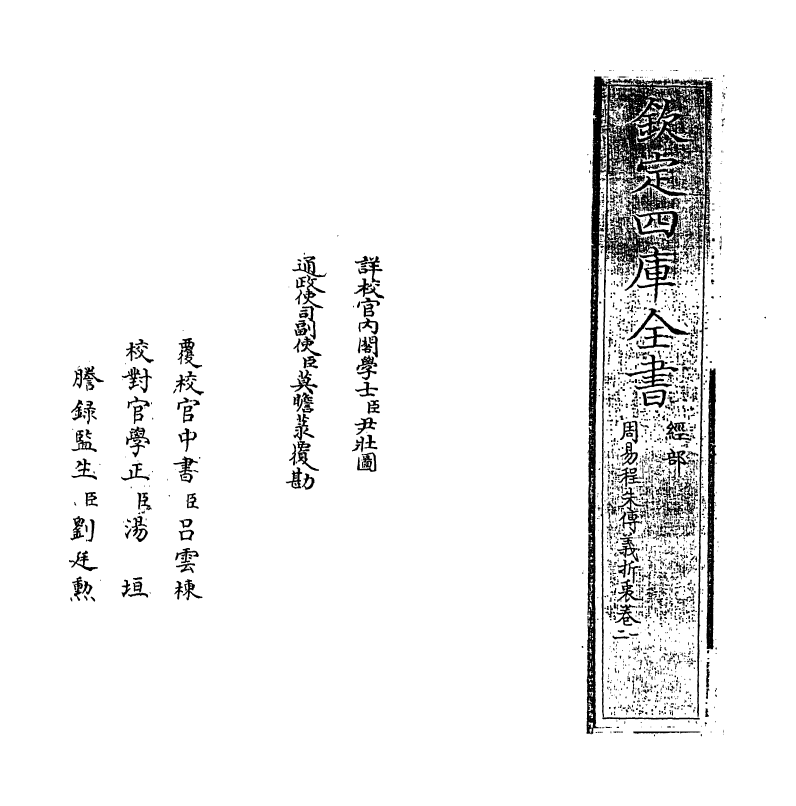 欽定四庫全書
經部
周易程朱傳義折衷卷二
詳校官內閣學士臣尹壯圖
通政使司副使臣莫瞻菉覆勘
覆校官中書臣呂雲棟
校對官學正臣湯垣
謄錄監生臣劉廷勲